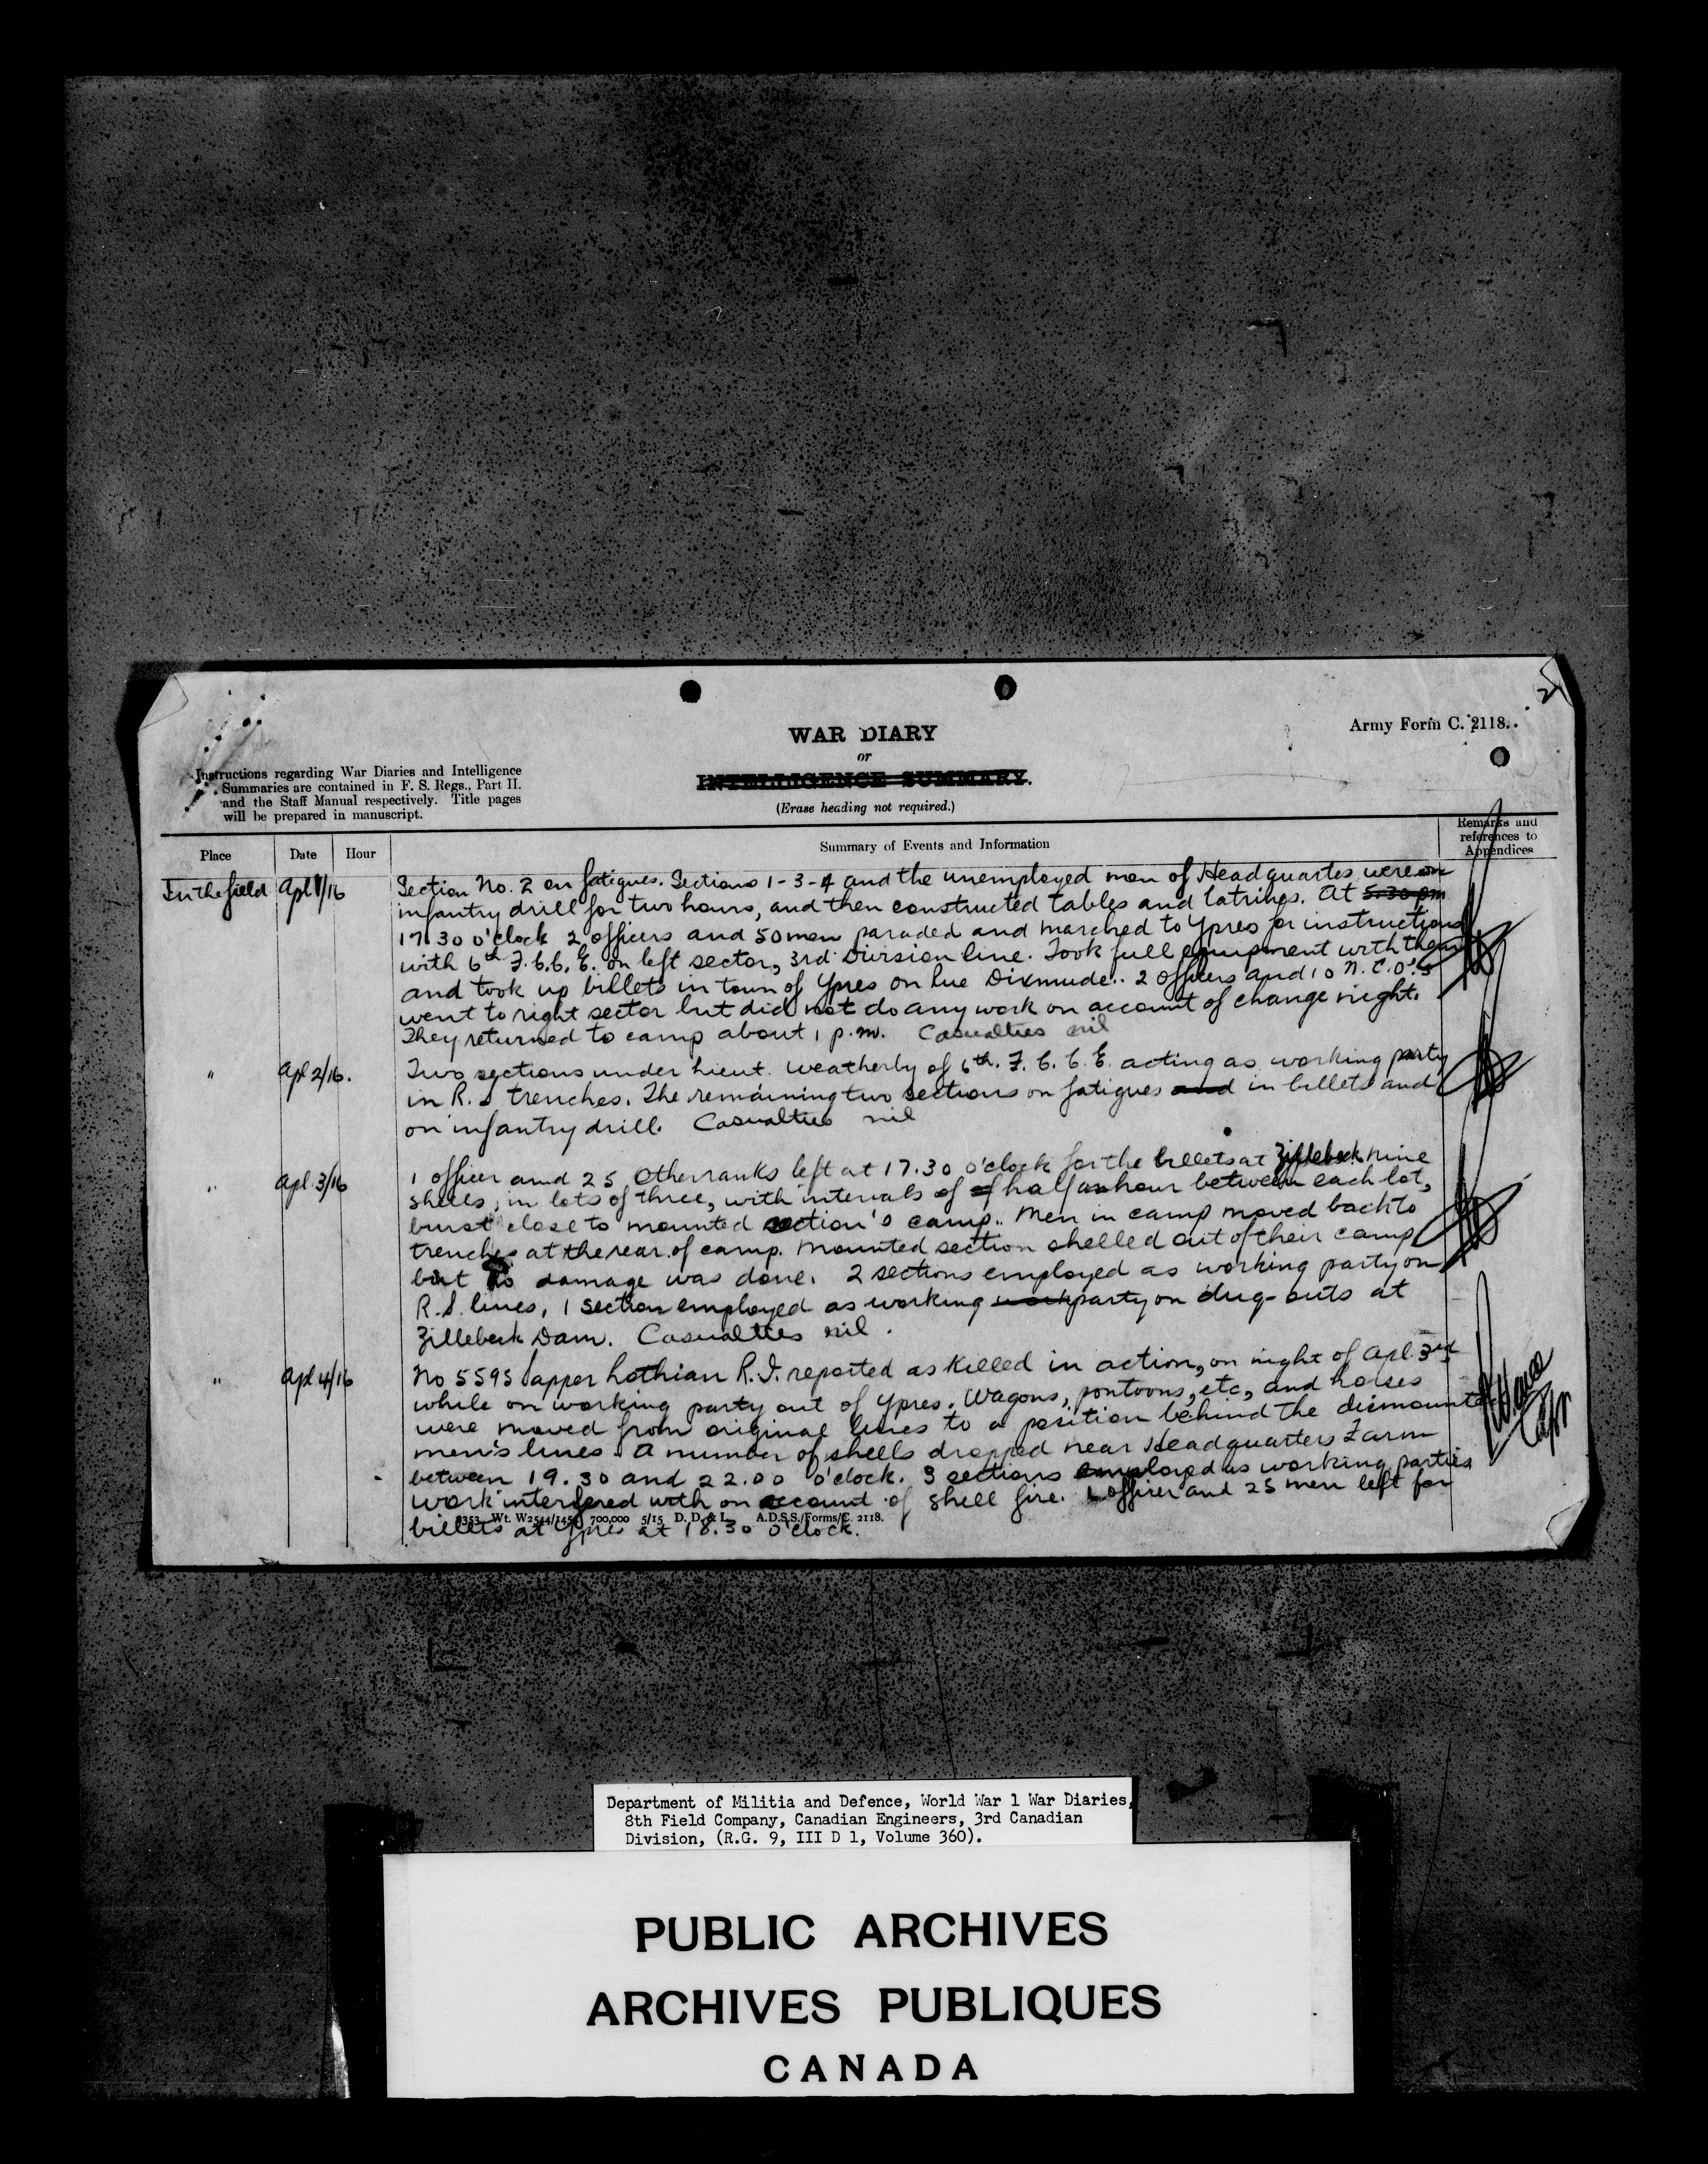 2
Army Form C. 2118.
WAR DIARY
or
INTELLIGENCE SUMMARY.
(Erase heading not required.)
Instructions regarding War Diaries and Intelligence
Summaries are contained in F. S. Regs., Part II.
and the Staff Manual respectively. Title pages
will be prepared in manuscript.
Place Date Hour Summary of Events and Information Remarks and references to Appendices
In the field Apl 1/16 Section No. 2 on fatigues. Sections 1-3-4 and the unemployed men of Headquartes were on
infantry drill for two hours, and then constructed tables and latrines. At 5.30 pm
17.30 o'clock 2 officers and 50 men paraded and marched to Ypres for instructions
with 6th F.C.C.E. on left sector, 3rd Division line. Took full equipment with them
and took up billets in town of Ypres on Rue Dixmude.. 2 officers and 10 N.C.O's
went to right sector but did not do any work on account of change night.
They returned to camp about 1 p.m. Casualties nil
" Apl 2/16. Two sections under Lieut. Weatherly of 6th. F.C.C.E. acting as working party
in R.S trenches. The remaining two sections on fatigues and in billets and
on infantry drill. Casualties nil
" Apl 3/16 1 officer and 25 Other ranks left at 17.30 o'clock for the billets at Zillebeck Nine
shells, in lots of three, with intervals of of half an hour between each lot,
burst close to mounted section's camp.. Men in camp moved back to
trenches at the rear of camp. Mounted section shelled out of their camp
but no damage was done. 2 sections employed as working party on
R.S. lines, 1 section employed as working work party on dug-outs at
Zillebeck Dam. Casualties nil.
" Apl 4/16 No 5595 Sapper Lothian R.J. reported as killed in action, on night of Apl. 3rd
while on working party out of Ypres. Wagons, pontoons, etc, and horses
were moved from original lines to a position behind the dismounted
men's lines. A number of shells dropped near Headquarters Farm
between 19.30 and 22.00 o'clock. 3 sections employed as working parties
work interfered with on account of shell fire. 1 officer and 25 men left for
billets at Ypres at 18.30 o'clock.
Capt
700,000 5/15 D. D. & L. A.D.S.S./Forms/C. 2118.
Department of Militia and Defence, World War 1 War Diaries,
8th Field Company, Canadian Engineers, 3rd Canadian
Division, (R.G. 9, III D 1, Volume 360).
PUBLIC ARCHIVES
ARCHIVES PUBLIQUES
CANADA